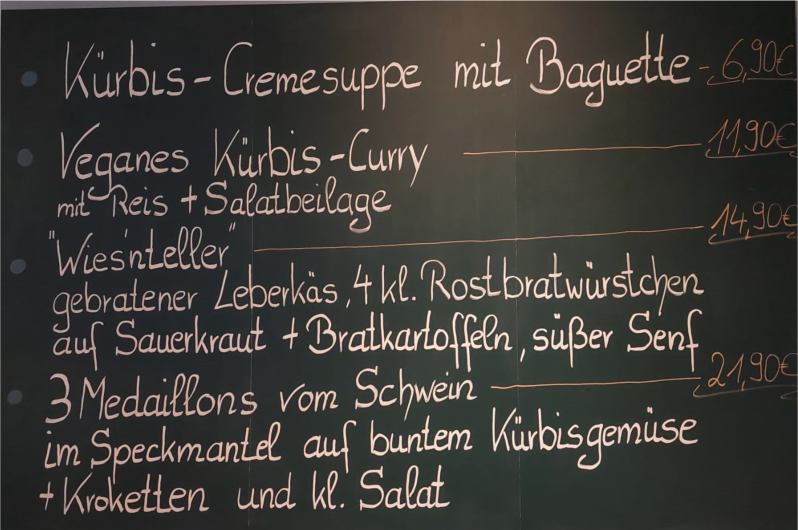 Kürbis-Cremesuppe mit Baguette - 6,90€
Veganes Kürbis-Curry 11,90€
mit Reis + Salatbeilage
"Wies'nteller" 14,90€
gebratener Leberkäs, 4 kl. Rostbratwürstchen
auf Sauerkraut + Bratkartoffeln, süßer Senf
3 Medaillons vom Schwein 21,90€
im Speckmantel auf buntem Kürbisgemüse
+ Kroketten und kl. Salat